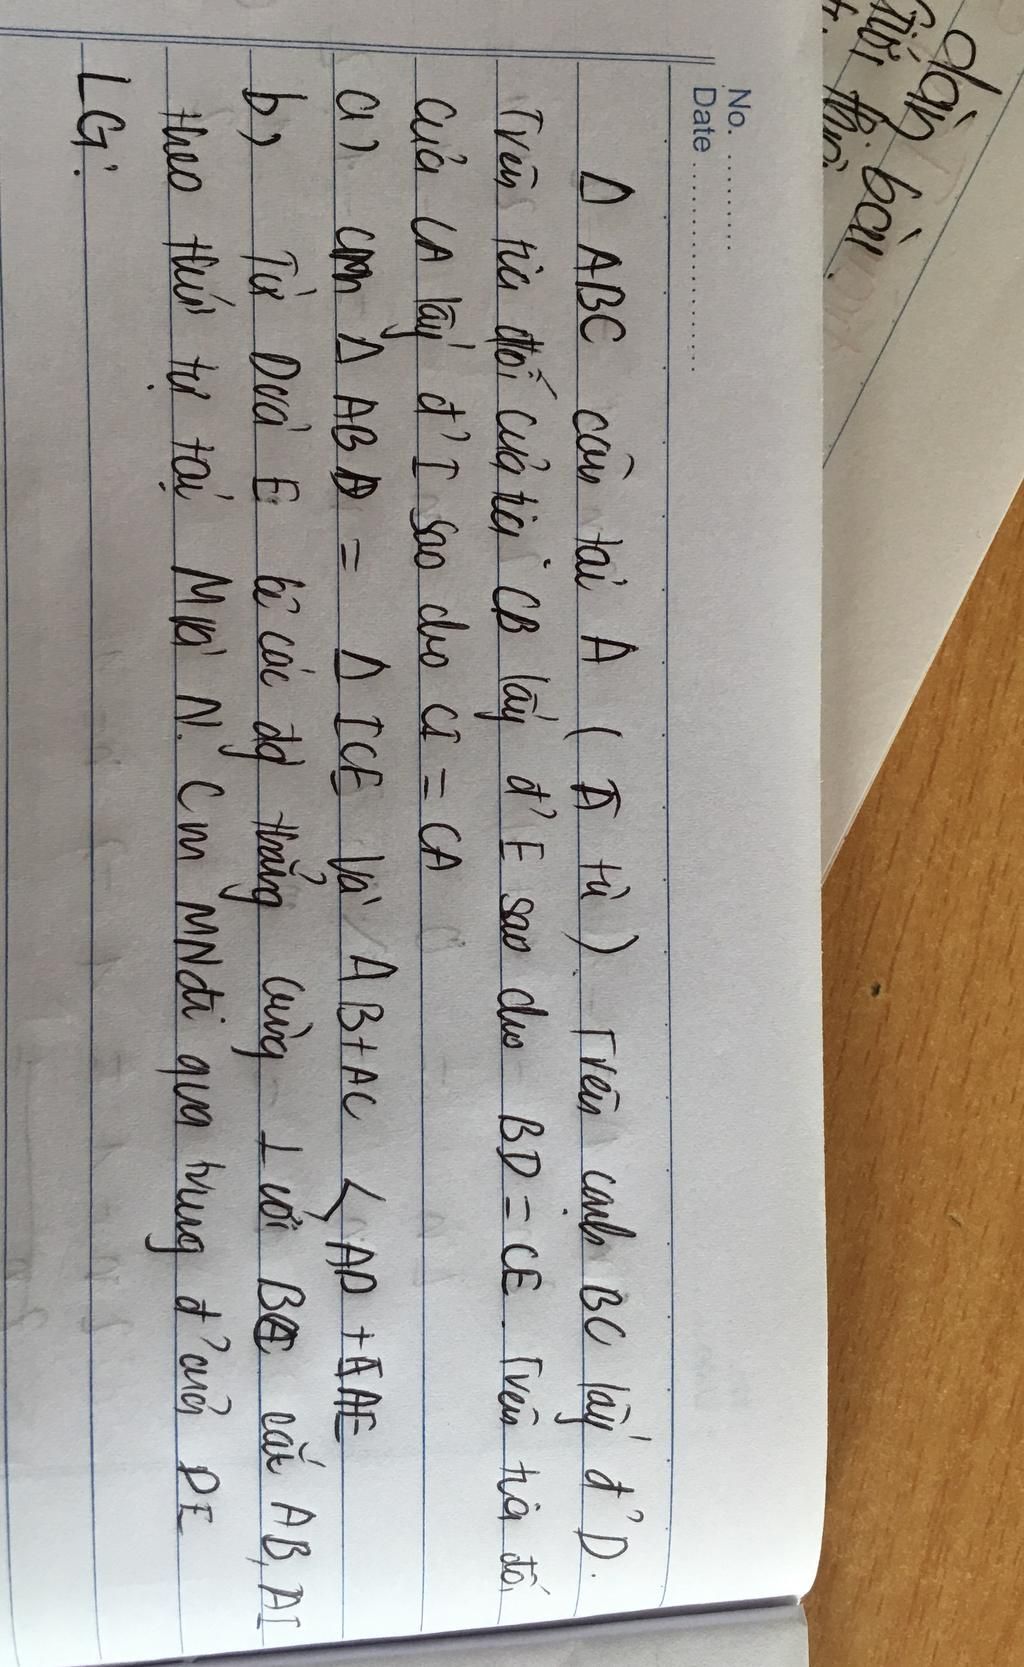 dàn bài.
No. ..........
Date ....................
Δ ABC cân tại A ( Â tù ). Trên cạnh BC lấy đ' D.
Trên tia đối của tia CB lấy đ' E sao cho BD = CE. Trên tia đối
của CA lấy đ' I sao cho CI = CA
a) cm Δ ABD = Δ ICE và AB + AC < AD + AE
b) Từ D và E kẻ các đg thẳng cùng ⊥ với BC cắt AB, AI
theo thứ tự tại M và N. Cm MN đi qua trung đ' của DE
LG: